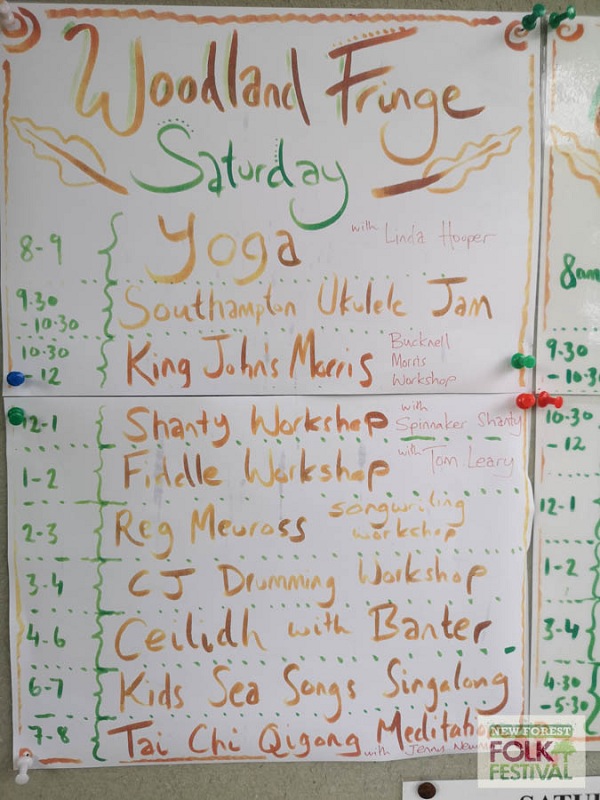 Woodland Fringe
Saturday
8-9 Yoga with Linda Hooper
9.30 - 10.30 Southampton Ukulele Jam
10.30 - 12 King John's Morris Bucknell Morris Workshop
12-1 Shanty Workshop with Spinnaker Shanty
1-2 Fiddle Workshop with Tom Leary
2-3 Reg Meuross songwriting workshop
3-4 CJ Drumming Workshop
4-6 Ceilidh with Banter
6-7 Kids Sea Songs Singalong
7-8 Tai Chi Qigong Meditation with Jenny
8am
9.30
10.30
- 12
12-1
1-2
3-4
4.30
- 5.30
NEW FOREST
FOLK
FESTIVAL